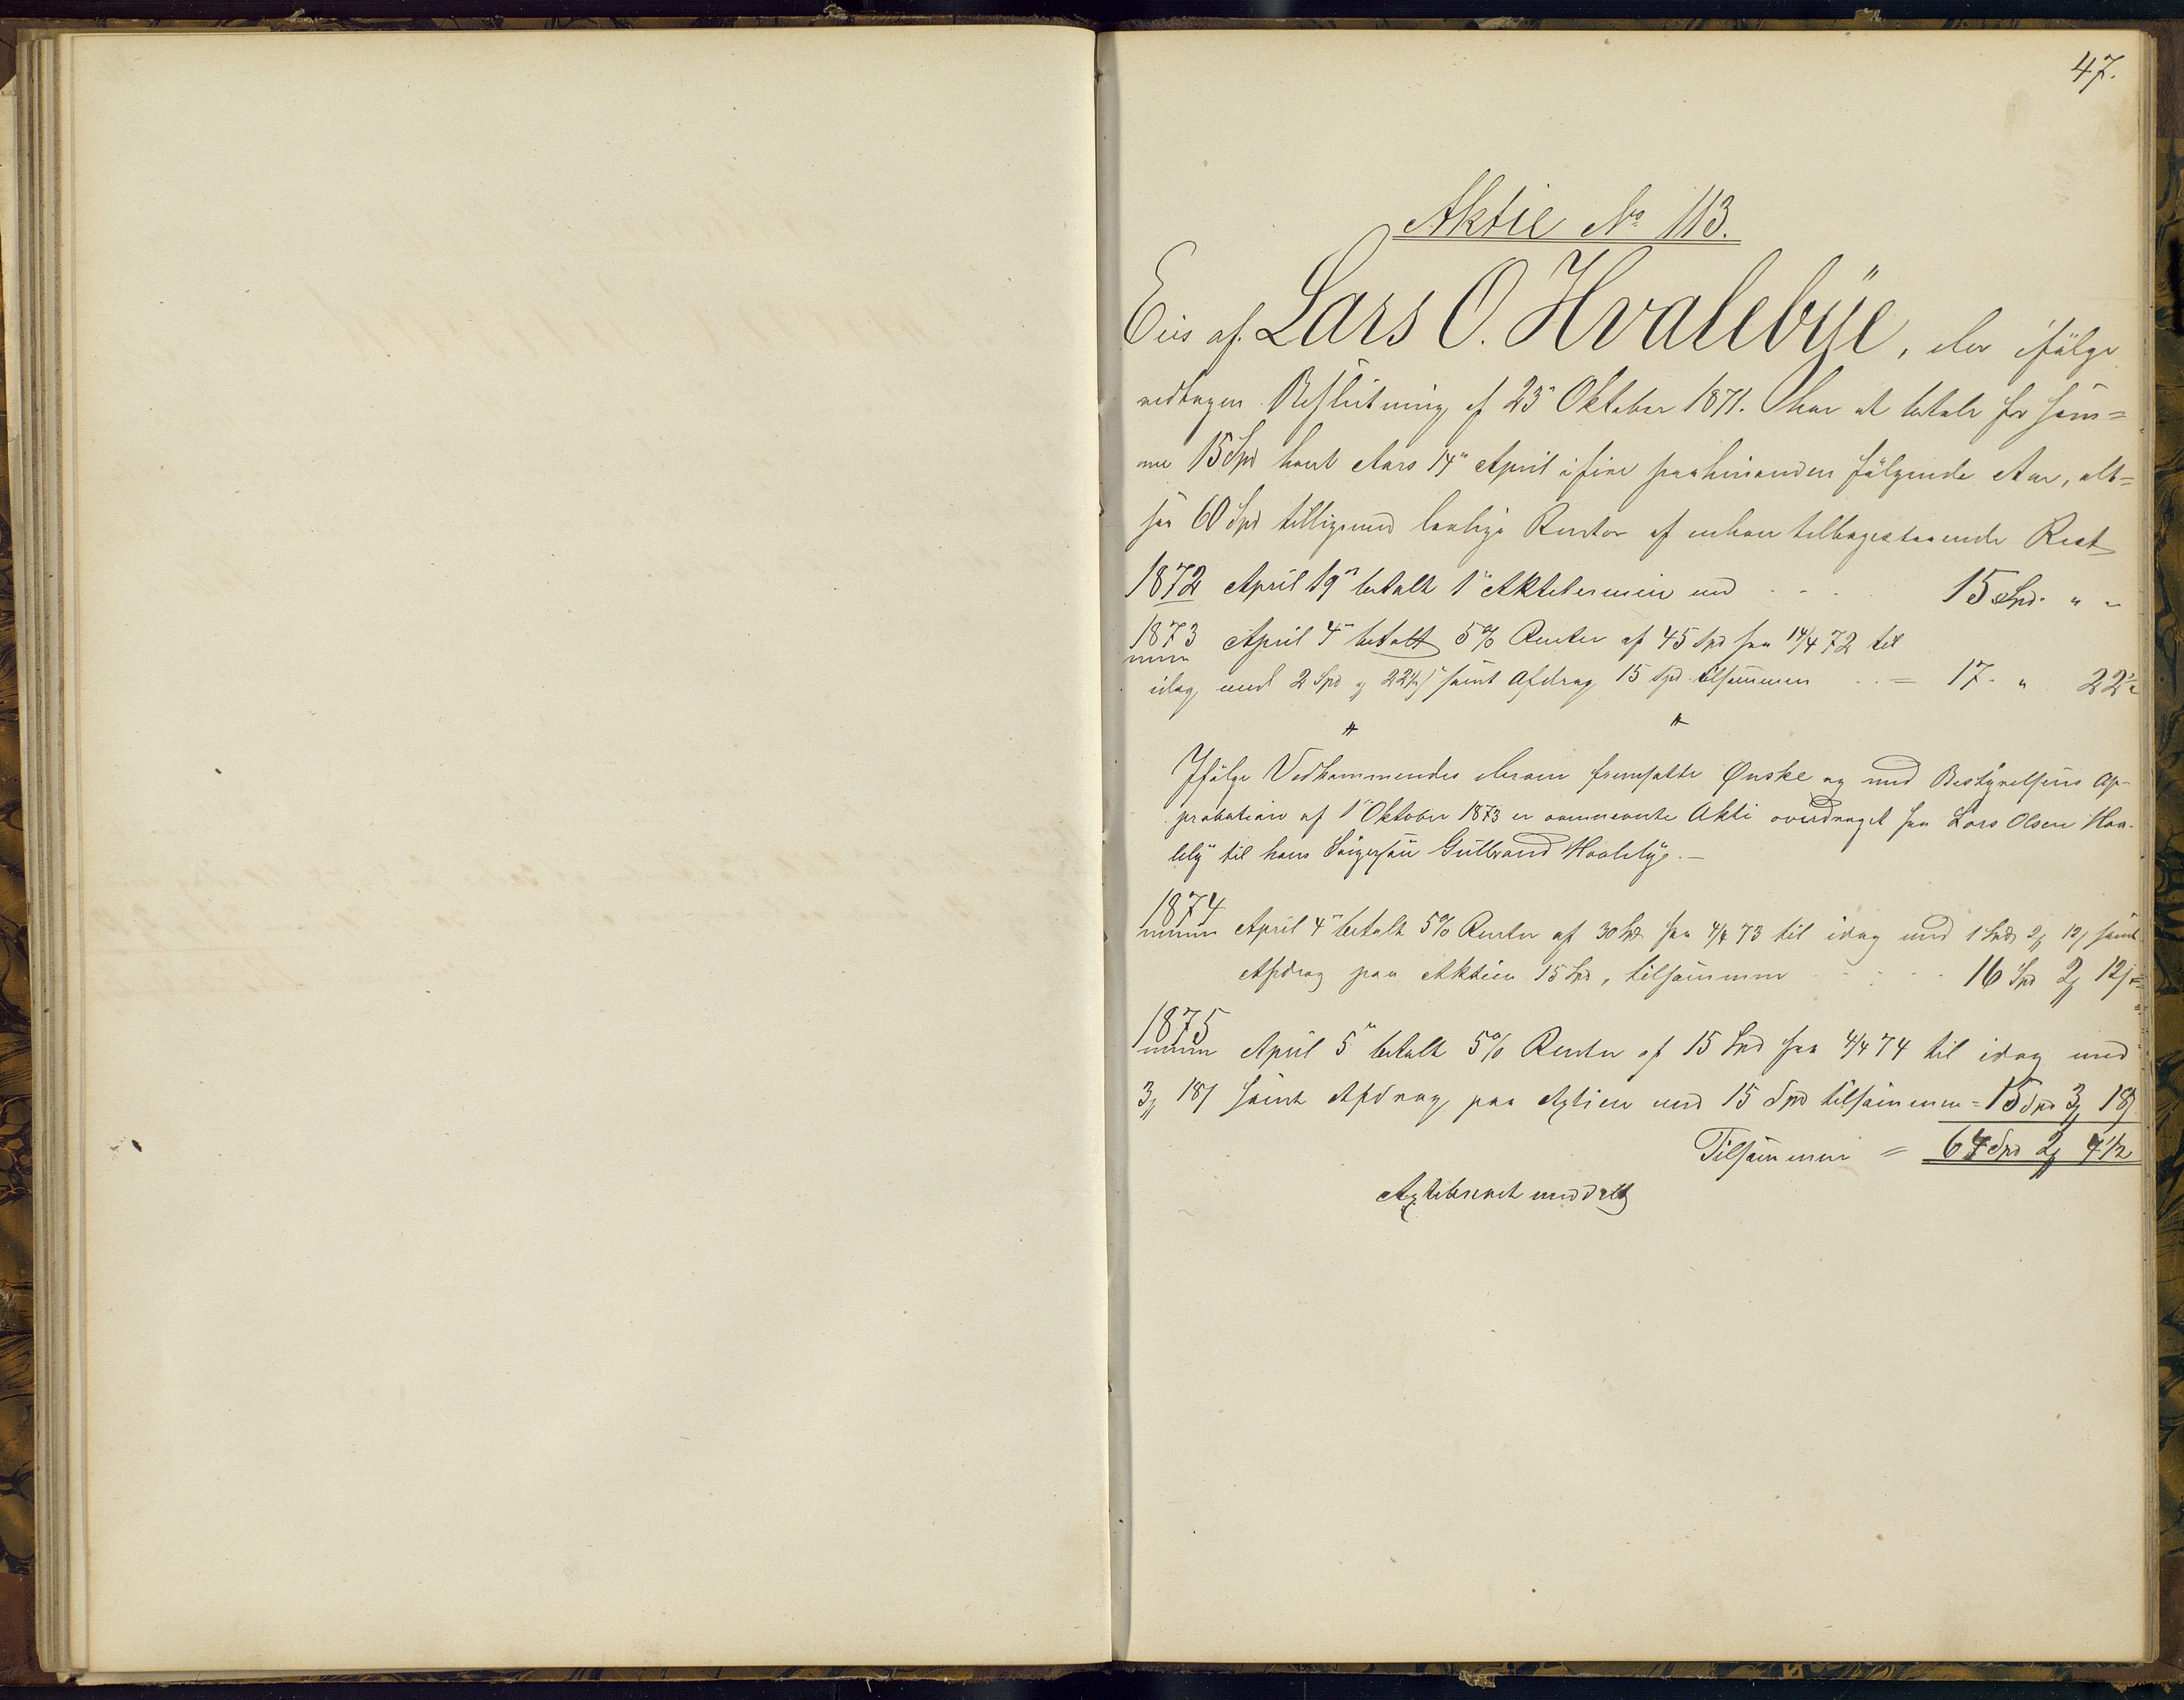 47.
Aktie No 113.
Eies af Lars O. Hvalebÿe, der ifølge
vedtagen Beslutning af 23" Oktober 1871. har at betale for sam=
me 15 Spd hvert Aars 14" April i fire paahinanden følgende Aar, alt=
saa 60 Spd tilligemed lovlige Renter af enhver tilbagestaaende Rest
1872 April 19" betalt 1" Aktietermin med - - - 15 Spd. " "
1873 April 4" betalt 5% Renter af 45 Spd fra 14/4 72 til
idag med 2 Spd og 22½ β samt Afdrag 15 Spd tilsammen - - = 17 - " 22½
Ifølge Vedkommendes derom fremsatte Ønske og med Bestyrelsens Ap-
probation af 1" Oktober 1873 er ovennævnte Akti overdraget fra Lars Olsen Hva-
leby til hans Svigersøn Gulbrand Hvalebye. -
1874 April 4" betalt 5% Renter af 30 Spd fra 4/4 73 til idag med 1 Spd 2 ƒ 12 β samt
Afdrag paa Aktien 15 Spd, tilsammen - - - - 16 Spd 2 ƒ 12 β =
1875 April 5" betalt 5% Renter af 15 Spd fra 4/4 74 til idag med
3 ƒ 18 β samt Afdrag paa Aktien med 15 Spd tilsammen = 15 Spd 3 ƒ 18 β
Tilsammen = 64 Spd 2 ƒ 4½
Aktiebrevet meddelt